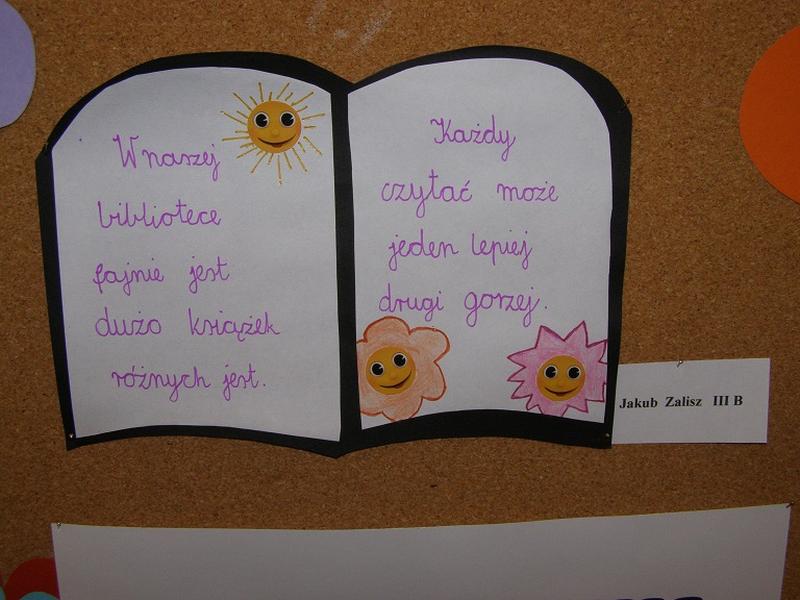 W naszej
bibliotece
fajnie jest
dużo książek
różnych jest.
Każdy
czytać może
jeden lepiej
drugi gorzej.
Jakub Zalisz III B